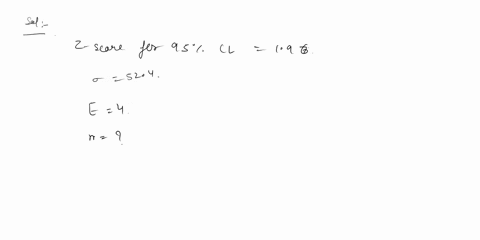 Sol:-
Z score for 95% CL = 1.96.
σ = 52.4.
E = 4.
n = ?